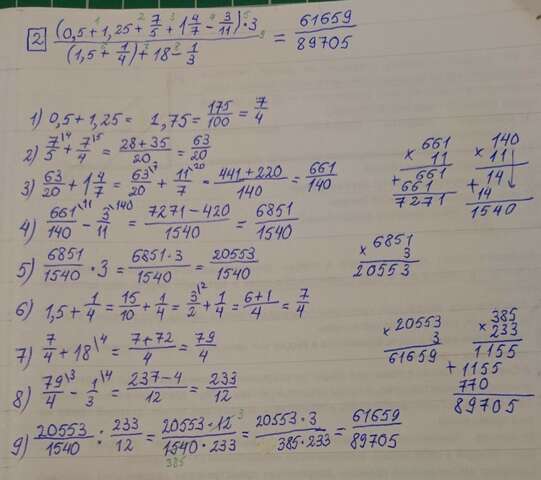 2 (0,5 + 1,25 + 7/5 + 1 4/7 - 3/11) · 3 / (1,5 + 1/4) + 18 - 1/3 = 61659/89705
1) 0,5 + 1,25 = 1,75 = 175/100 = 7/4
2) 7/5 \4 + 7/4 \5 = 28+35/20 = 63/20
3) 63/20 + 1 4/7 = 63/20 \7 + 11/7 \20 = 441+220/140 = 661/140
4) 661/140 \11 - 3/11 \140 = 7271-420/1540 = 6851/1540
5) 6851/1540 · 3 = 6851·3/1540 = 20553/1540
6) 1,5 + 1/4 = 15/10 + 1/4 = 3/2 \2 + 1/4 = 6+1/4 = 7/4
7) 7/4 + 18 \4 = 7+72/4 = 79/4
8) 79/4 \3 - 1/3 \4 = 237-4/12 = 233/12
9) 20553/1540 : 233/12 = 20553·12 3/1540·233 = 20553·3/385·233 = 61659/89705
385
× 661
11
+ 661
661
7271
× 140
11
+ 14
14
1540
× 6851
3
20553
× 20553
3
61659
× 385
233
1155
+ 1155
770
89705